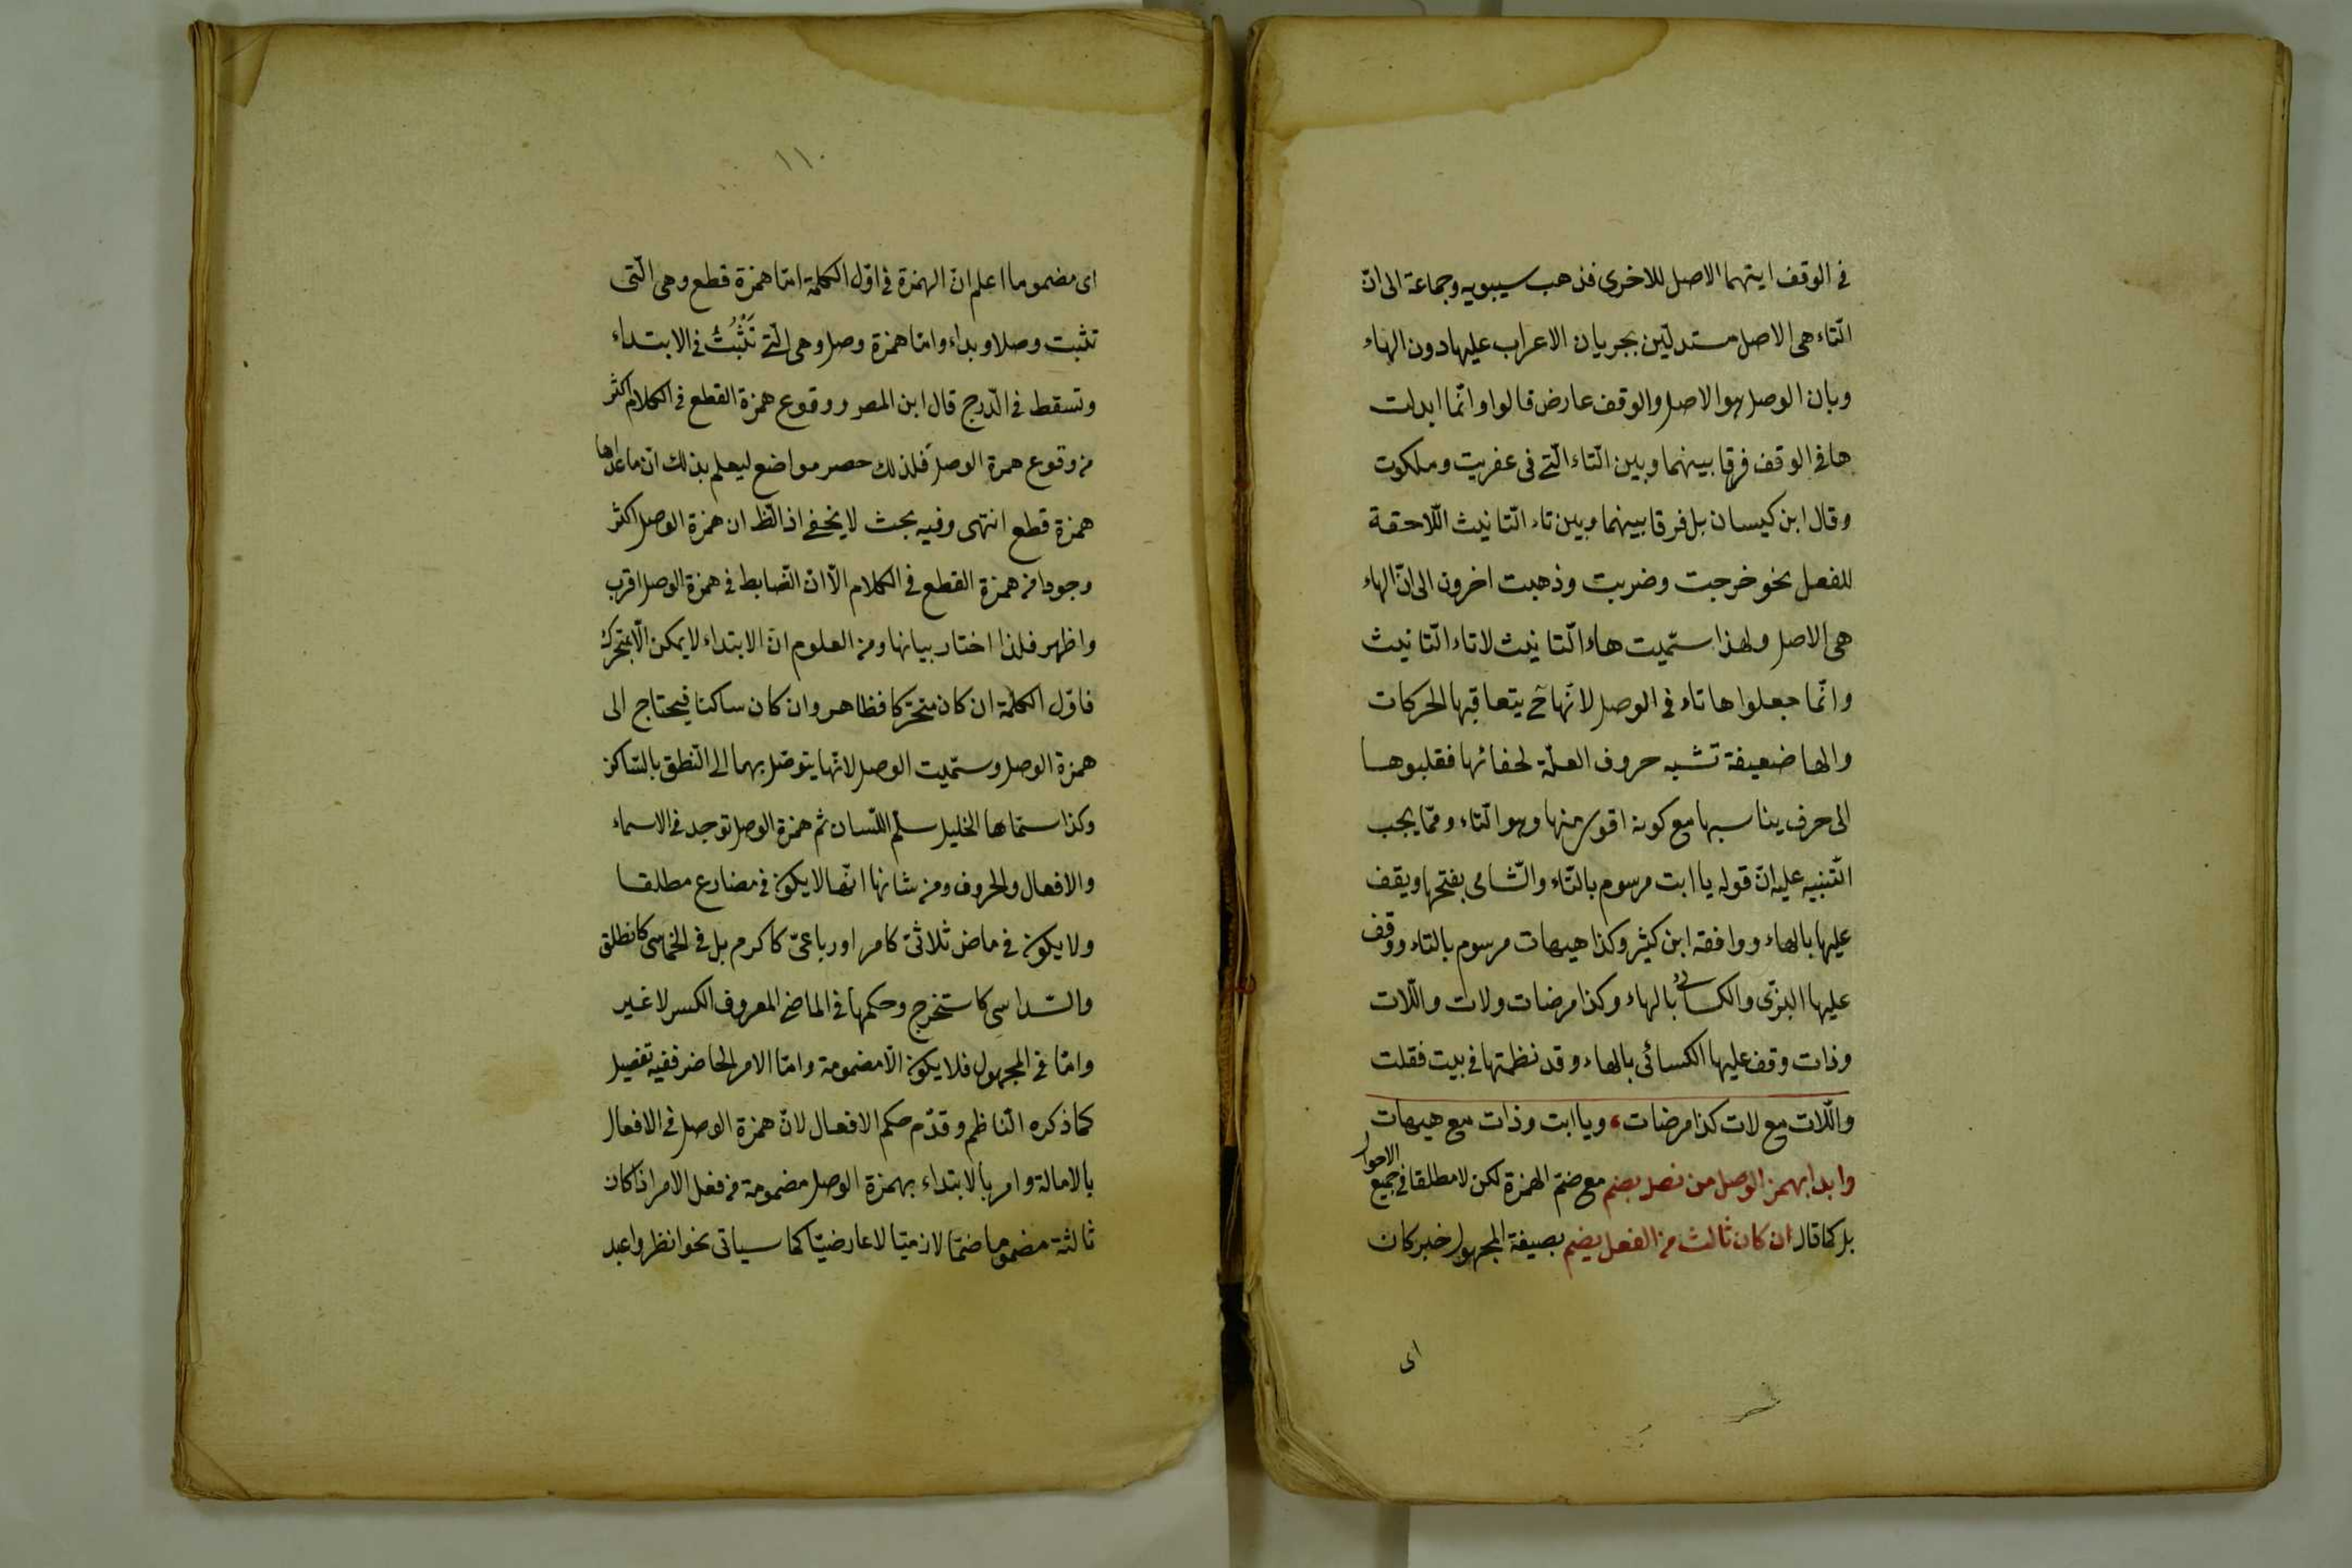 في الوقف ايتهما الاصل للاخرى فذهب سيبويه وجماعة الى ان
التاء هي الاصل مستدلين بجريان الاعراب عليها دون الهاء
وبان الوصل هو الاصل والوقف عارض قالوا وانما ابدلت
هاء في الوقف فرقا بينهما وبين التاء التي في عفريت وملكوت
وقال ابن كيسان بل فرقا بينهما وبين تاء التانيث اللاحقة
للفعل نحو خرجت وضربت وذهبت اخرون الى ان الهاء
هي الاصل ولهذا سميت هاء التانيث لا تاء التانيث
وانما جعلوا ها تاء في الوصل لانها ح يتعاقبها الحركات
والها ضعيفة تشبه حروف العلة لخفائها فقلبوها
الى حرف يناسبها مع كونه اقوى منها وهو التاء ومما يجب
التنبيه عليه ان قوله يا ابت مرسوم بالتاء والشامي بفتحها ويقف
عليها بالهاء ووافقه ابن كثير وكذا هيهات مرسوم بالتاء ووقف
عليها البزى والكسائى بالهاء وكذا مرضات ولات واللات
وذات وقف عليها الكسائى بالهاء وقد نظمتها في بيت فقلت
واللات مع لات كذا مرضات ، ويا ابت وذات مع هيهات
وابدا بهمز الوصل من فعل بضم مع ضم الهمزة لكن لا مطلقا في جميع الاحوال
بل كما قال ان كان ثالث من الفعل يضم بصيغة المجهول خبر كان
اى
١١٠
اى مضموما اعلم ان الهمزة في اول الكلمة اما همزة قطع وهي التى
تثبت وصلا وبداء واما همزة وصل وهي التي تَثْبُتُ في الابتداء
وتسقط في الدرج قال ابن المصر ووقوع همزة القطع في الكلام اكثر
من وقوع همزة الوصل فلذلك حصر مواضع ليعلم بذلك ان ما عداها
همزة قطع انتهى وفيه بحث لا يخفى اذ الظ ان همزة الوصل اكثر
وجودا من همزة القطع في الكلام الا ان الضابط في همزة الوصل اقرب
واظهر فلذا اختار بيانها ومن العلوم ان الابتداء لا يمكن الا بمتحرك
فاول الكلمة ان كان متحركا فظاهر وان كان ساكنا فيحتاج الى
همزة الوصل وسميت الوصل لانها يتوصل بهما الى النطق بالساكن
وكذا سماها الخليل سلم اللسان ثم همزة الوصل توجد في الاسماء
والافعال والحروف ومن شانها انها لا يكون في مضارع مطلقا
ولا يكون في ماض ثلاثى كامر او رباعى كاكرم بل في الخماسى كانطلق
والسداسى كاستخرج وحكمها في الماضي المعروف الكسر لا غير
واما في المجهول فلا يكون الا مضمومة واما الامر الحاضر ففيه تفصيل
كما ذكره الناظم وقدم حكم الافعال لان همزة الوصل في الافعال
بالاصالة وامر بالابتداء بهمزة الوصل مضمومة من فعل الامر اذا كان
ثالثه مضموما ضما لازميا لا عارضيا كما سياتى نحو انظر واعبد